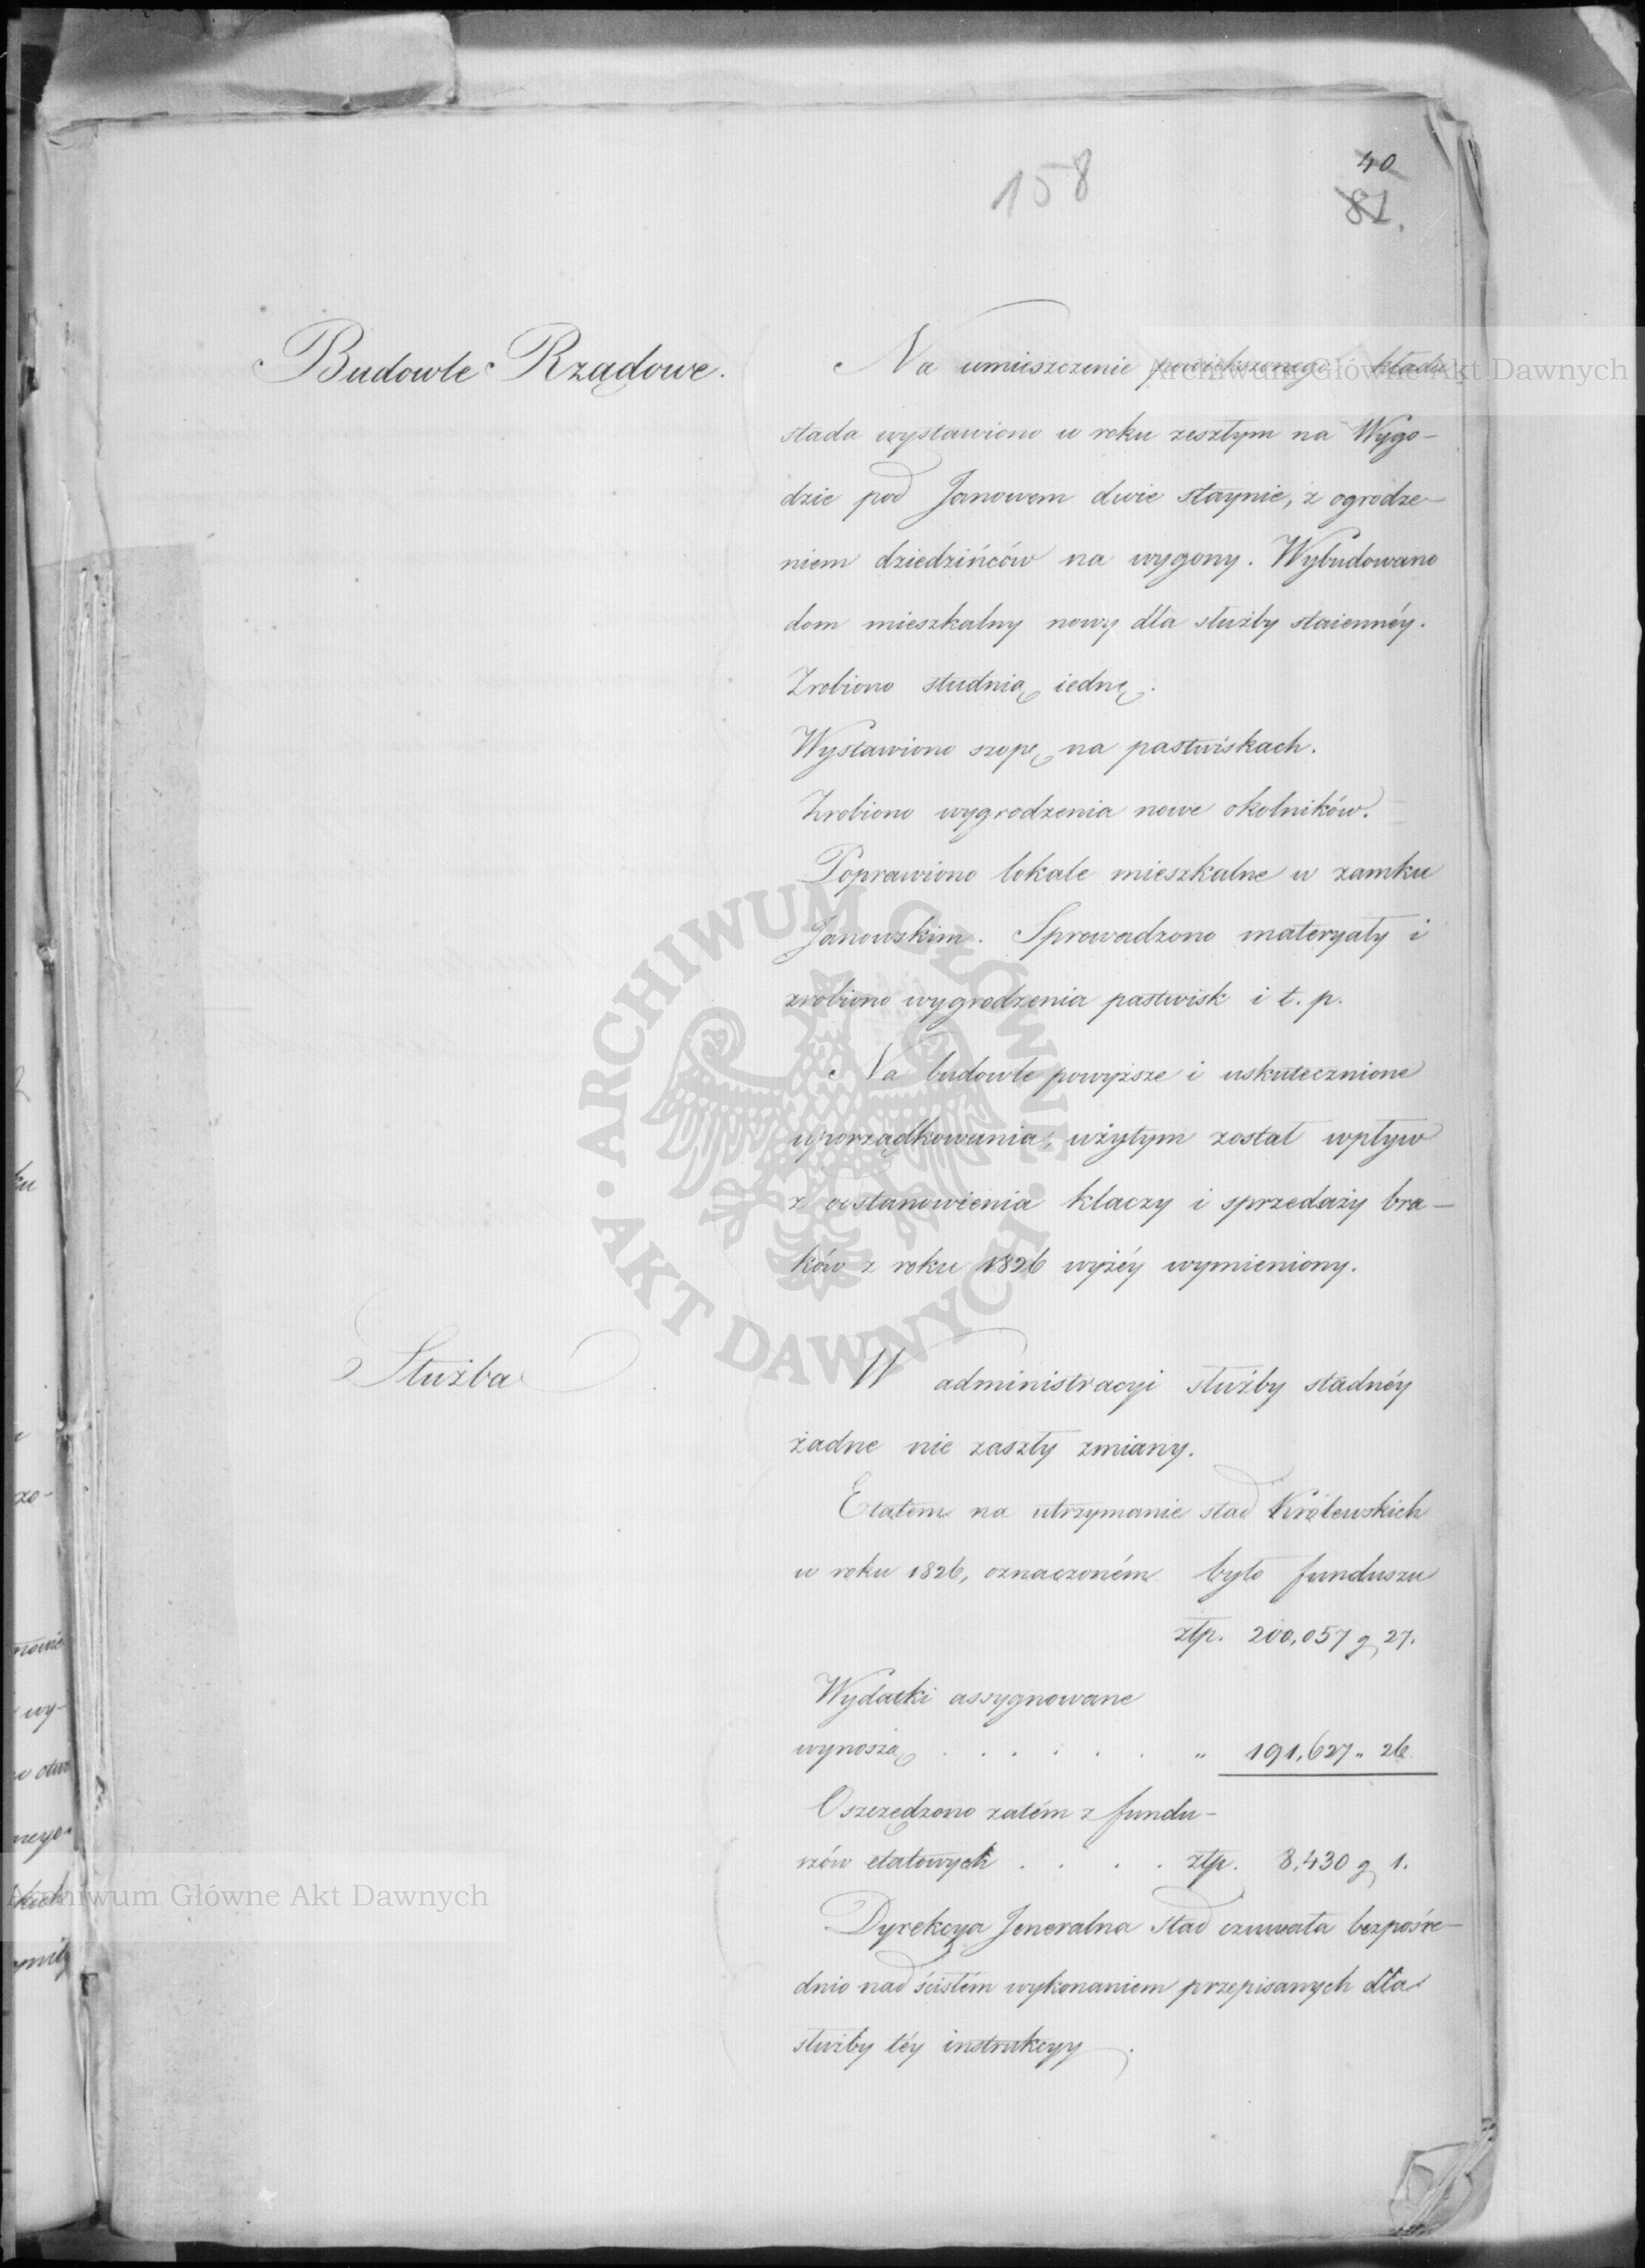 158
40
81.
Budowle Rządowe.
Na umieszczenie powiększonego składu
stada wystawiono w roku zeszłym na Wygo-
dzie pod Janowem dwie staynie, z ogrodze-
niem dziedzińców na wygony. Wybudowano
dom mieszkalny nowy dla służby staiennéy.
Zrobiono studnią iednę.
Wystawiono szopę na pastwiskach.
Zrobiono wygrodzenia nowe okolników.
Poprawiono lokale mieszkalne w zamku
Janowskim. Sprowadzono materyały i
zrobiono wygrodzenia pastwisk i t. p.
Na budowle powyższe i uskutecznione
uporządkowania, użytym został wpływ
z odstanowienia klaczy i sprzedaży bra-
ków z roku 1826 wyżéy wymieniony.
Służba
W administracyi służby stadnéy
żadne nie zaszły zmiany.
Etatem na utrzymanie stad Królewskich
w roku 1826, oznaczoném było funduszu
złp. 200,057 g 27.
Wydatki assygnowane
wynoszą . . . . . . " 191,627 " 26.
Oszczędzono zatém z fundu-
szów etatowych . . . . złp. 8,430 g 1.
Dyrekcya Jeneralna Stad czuwała bezpośre-
dnio nad ścisłém wykonaniem przepisanych dla
służby téy instrukcyy.
Archiwum Główne Akt Dawnych
ARCHIWUM GŁÓWNE · AKT DAWNYCH ·
Archiwum Główne Akt Dawnych